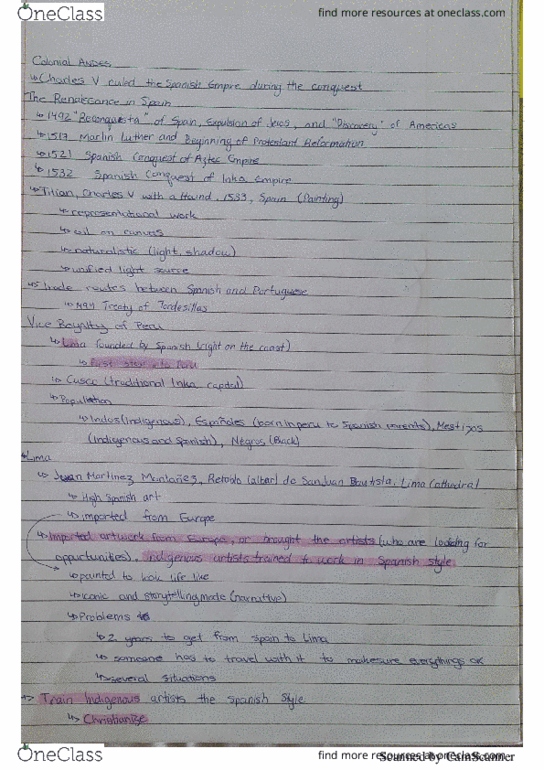 OneClass
find more resources at oneclass.com
Colonial Andes
↳ Charles V ruled the Spanish Empire during the conquest
The Renaissance in Spain
↳ 1492 "Reconquesta" of Spain, Expulsion of Jews, and "Discovery" of Americas
↳ 1517 Martin Luther and Beginning of Protestant Reformation
↳ 1521 Spanish Conquest of Aztec Empire
↳ 1532 Spanish Conquest of Inka Empire
↳ Titian, Charles V with a Hound, 1533, Spain (Painting)
↳ representational work
↳ oil on canvas
↳ naturalistic (light, shadow)
↳ unified light source
↳ Trade routes between Spanish and Portuguese
↳ 1494 Treaty of Tordesillas
Vice Royalty of Peru
↳ Lima founded by Spanish (right on the coast)
↳ First stop into Peru
↳ Cusco (traditional Inka capital)
↳ Population
↳ Indios (Indigenous), Españoles (born in peru to Spanish parents), Mestizos
(Indigenous and Spanish), Negros (Black)
↳ Lima
↳ Juan Martínez Montañez, Retablo (altar) de San Juan Bautista, Lima Cathedral
↳ High Spanish art
↳ imported from Europe
↳ Imported artwork from Europe, or brought the artists (who are looking for
opportunities). Indigenous artists trained to work in Spanish style
↳ painted to look life like
↳ iconic and storytelling mode (narrative)
↳ Problems
↳ 2 years to get from Spain to Lima
↳ someone has to travel with it to makesure everythings ok
↳ several situations
↳ Train Indigenous artists the Spanish Style
↳ Christianize
OneClass
find more resources at oneclass.com
Scanned by CamScanner